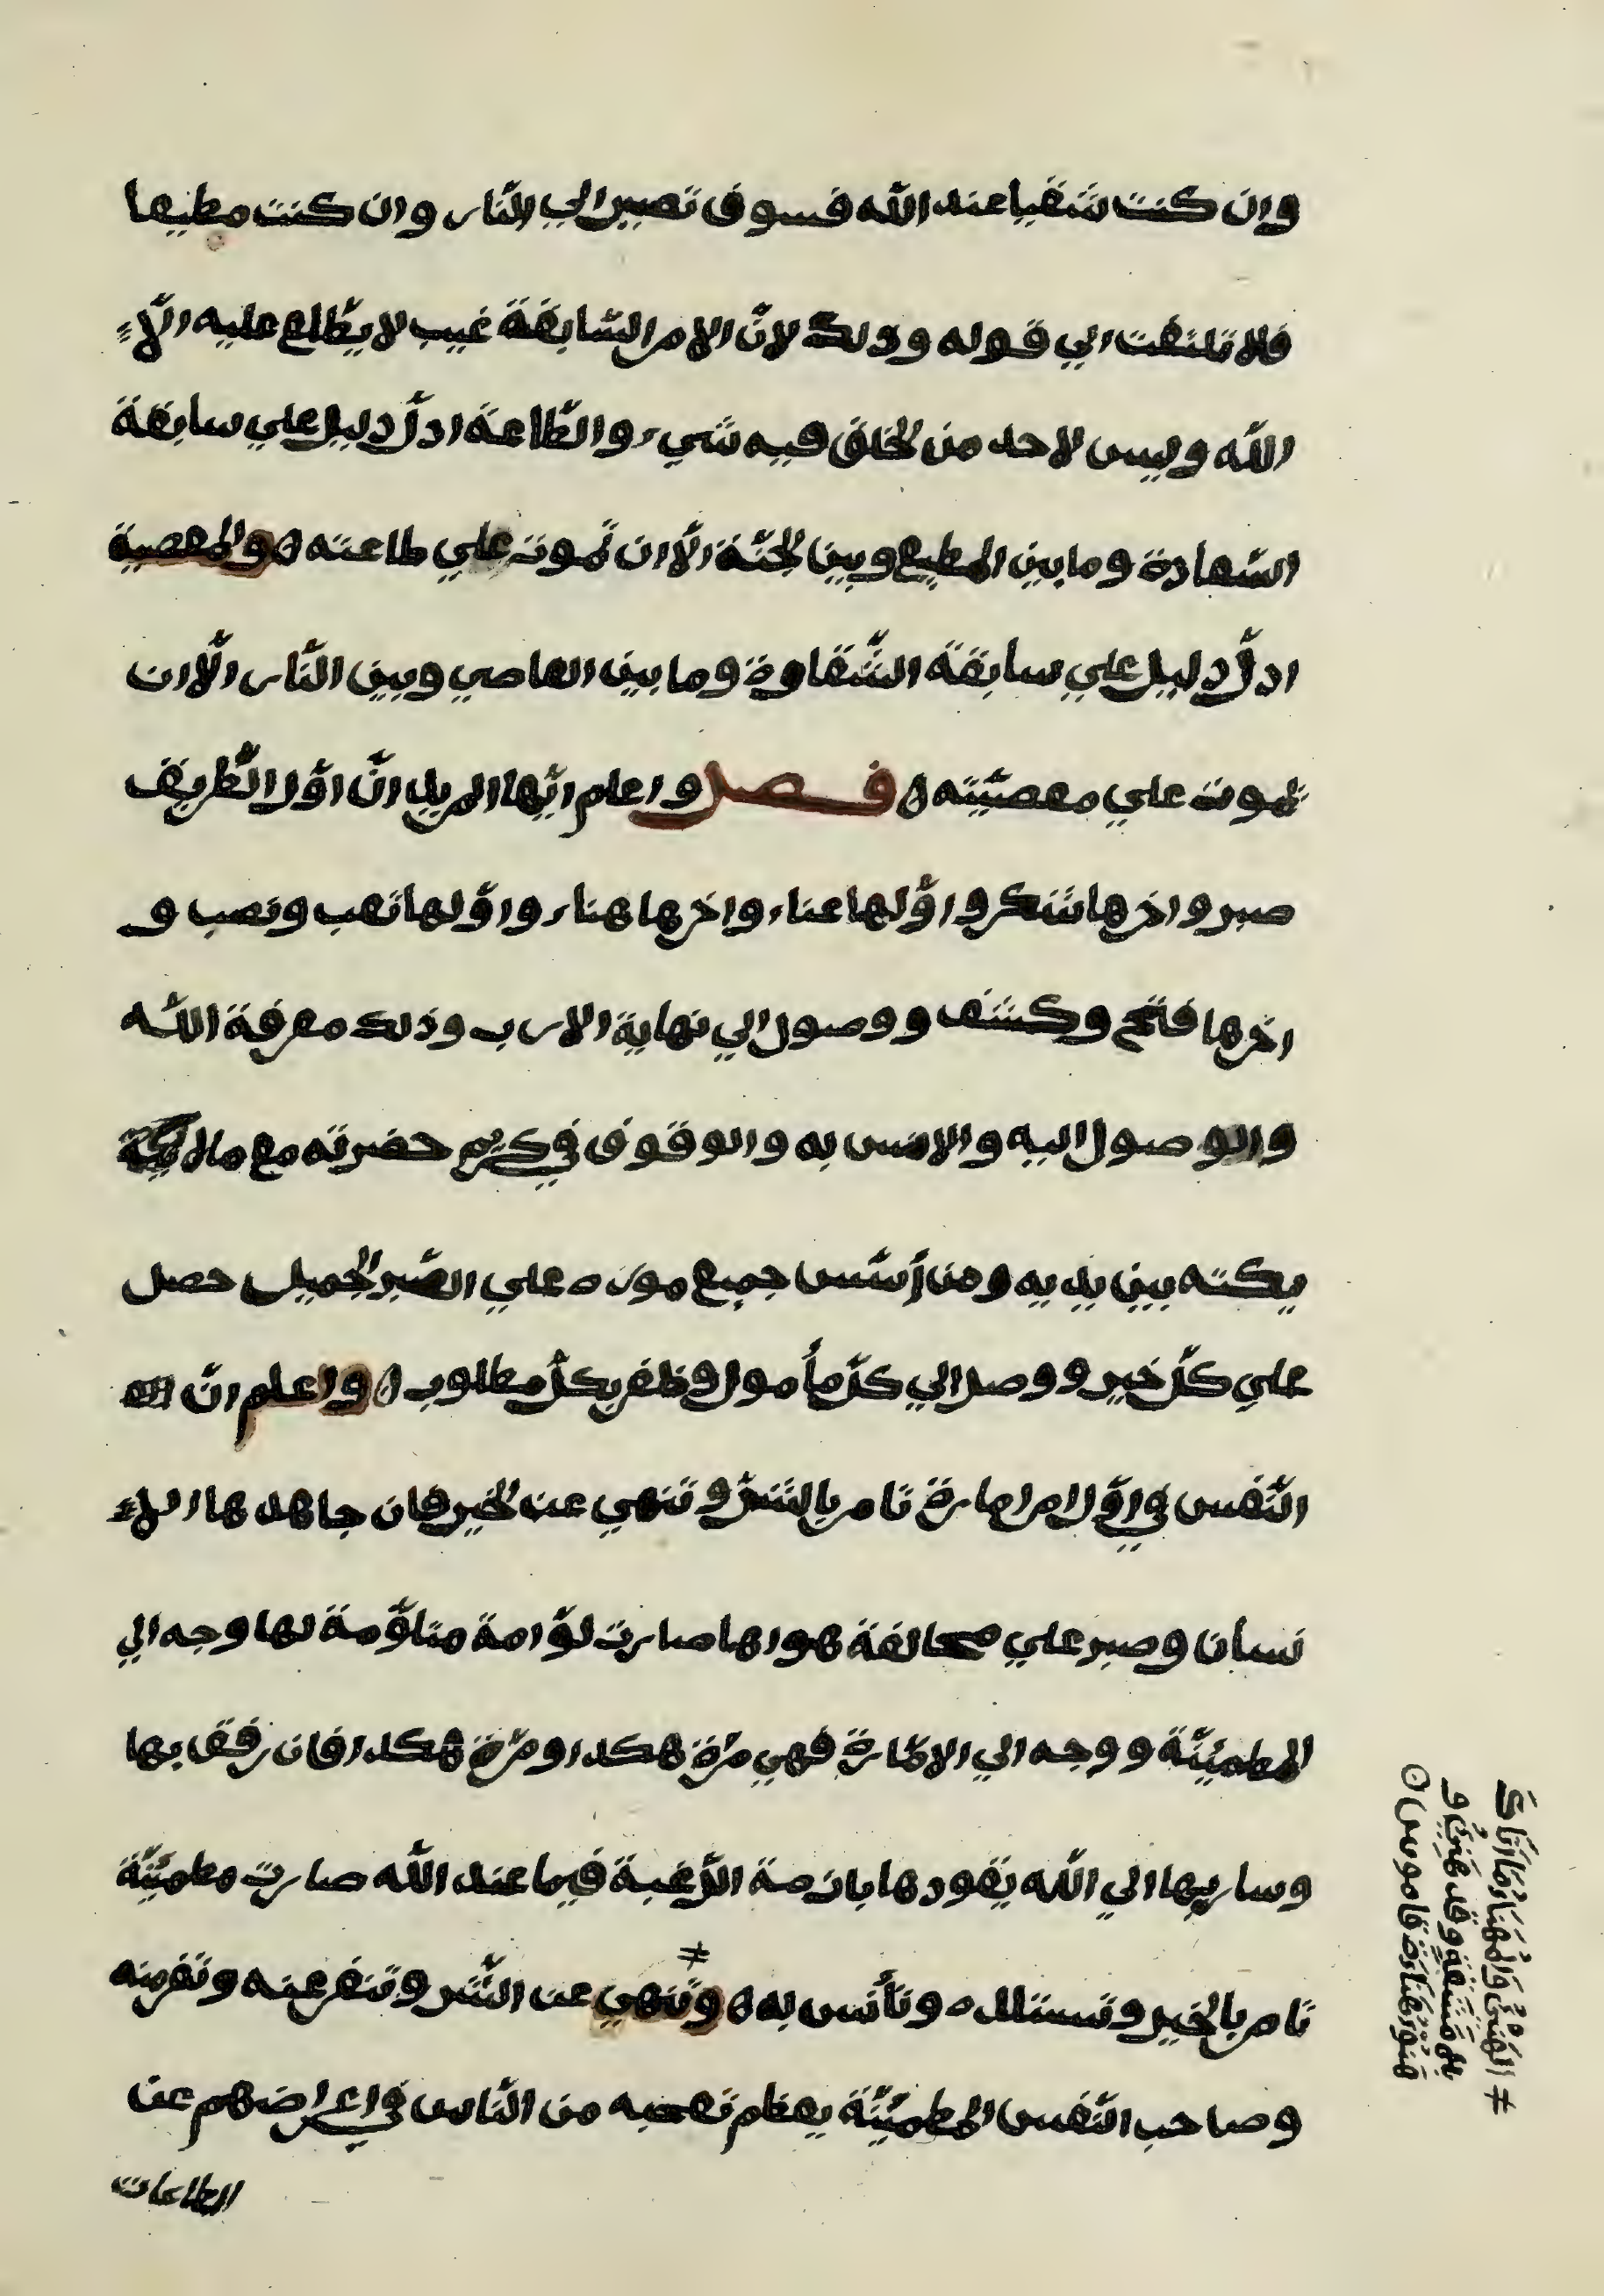 وان كنت شقيا عند الله فسوف تصير الي النّار وان كنت مطيعا
فلا تلتفت الي قوله وذلك لانّ الامر السّابقة غيب لا يطّلع عليه الّا
الله وليس لاحد من الخلق فيه شيء والطّاعة ادلّ دليل علي سابقة
السّعادة وما بين المطيع وبين الجنّة الّا ان تموت علي طاعته ه والمعصية
ادلّ دليل علي سابقة الشّقاوة وما بين العاصي وبين النّار الّا ان
يموت علي معصيّته ه فصل واعلم ايّها المريد انّ اوّل الطّريف
صبر واخرها شكر واوّلها عناء واخرها هناء واوّلها تعب ونصب و
اخرها فتح وكشف ووصول الي نهاية الارب وذلك معرفة الله
والوصول اليه والانس به والوقوف في كريم حضرته مع ملايكة
يكته بين يديه ومن أسّس جميع موره علي الصّبر الجميل حصل
علي كلّ خير ووصل الي كلّ مأمول وظفر بكلّ مطلوب ه واعلم انّ
النّفس في اوّل الامر امارة تامر بالشّرّ وتنهي عن الخير فان جاهدها الا
نسان وصبر علي مخالفة هواها صارت لوّامة متلوّمة لها وجه الي
المطميّنّة ووجه الي الامّارة فهي مرّة هكدا ومرّة هكدا فان رفق بها
وسار بها الي الله يقودها بازمة الرّغبة فيما عند الله صارت مطميّنّة
تامر بالخير وتستلده وتأنس به ه وتنهي عن الشّر وتنفر عنه وتفر منه
وصاحب النّفس المطميّنّة يعظم تعجبه من النّاس في اعراضهم عن
الطاعات
≠ الهَنِئُ والمُهَنَأُ مَا اَتَاكَ
بِلَا مَشَقَّةٍ وقد هَنِئَ و
هَنُؤَ هَنَاءَةً قاموس ⊙